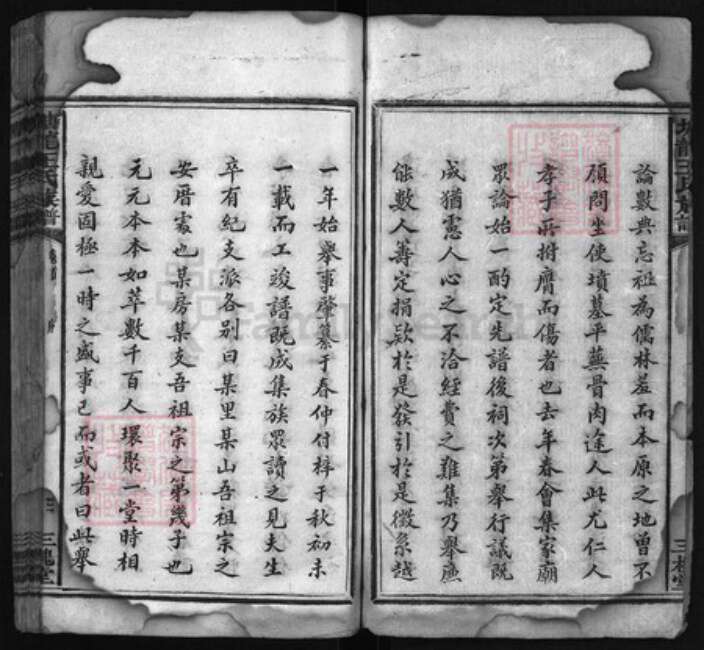 論數典忘祖為儒林羞而本原之地曾不
顧問坐使墳墓平蕪骨肉途人此尤仁人
孝子所拊膺而傷者也去年春會集家廟
眾論始一酌定先譜後祠次第舉行議既
成猶憲人心之不洽經費之難集乃舉廉
能數人籌定捐欵於是發引於是徵系越
一年始舉事肇纂于春仲付梓于秋初未
一載而工竣譜既成集族眾讀之見夫生
卒有紀支派各別曰某里某山吾祖宗之
安厝處也某房某支吾祖宗之第幾子也
元元本本如萃數千百人環聚一堂時相
親愛固極一時之盛事已而或者曰此舉
王氏族譜
三槐堂